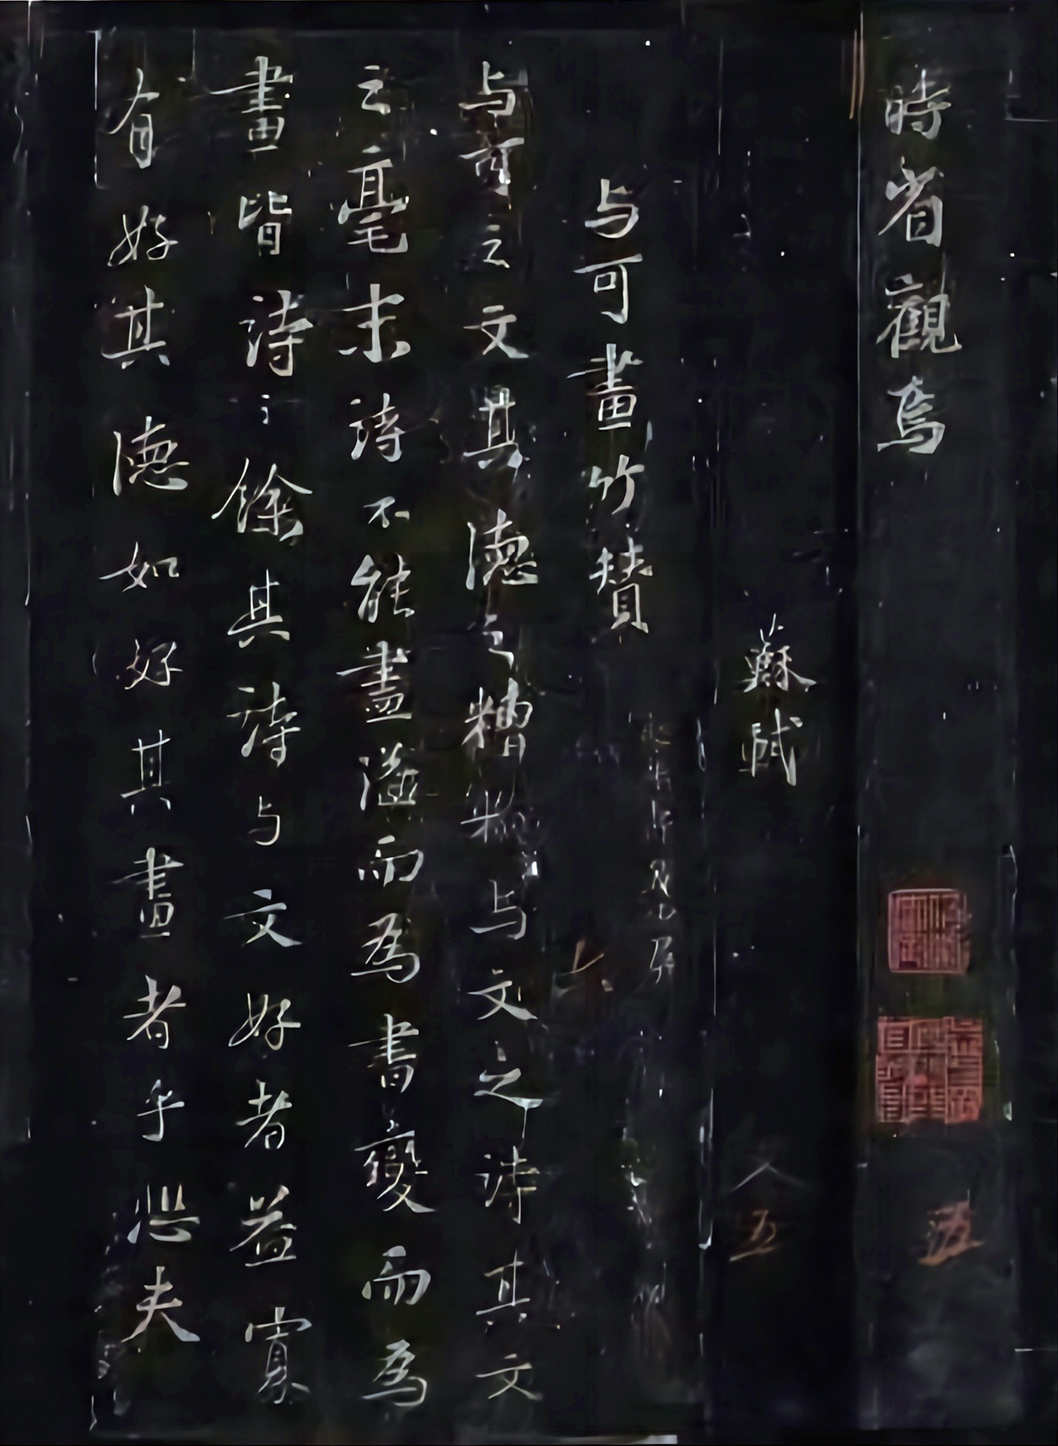 時省觀焉
蘇軾
五
五
与可畫竹贊
与可之文其德之糟粕与文之詩其文
之毫末詩不能盡溢而為書變而為
畫皆詩之餘其詩与文好者益寡
有好其德如好其畫者乎悲夫